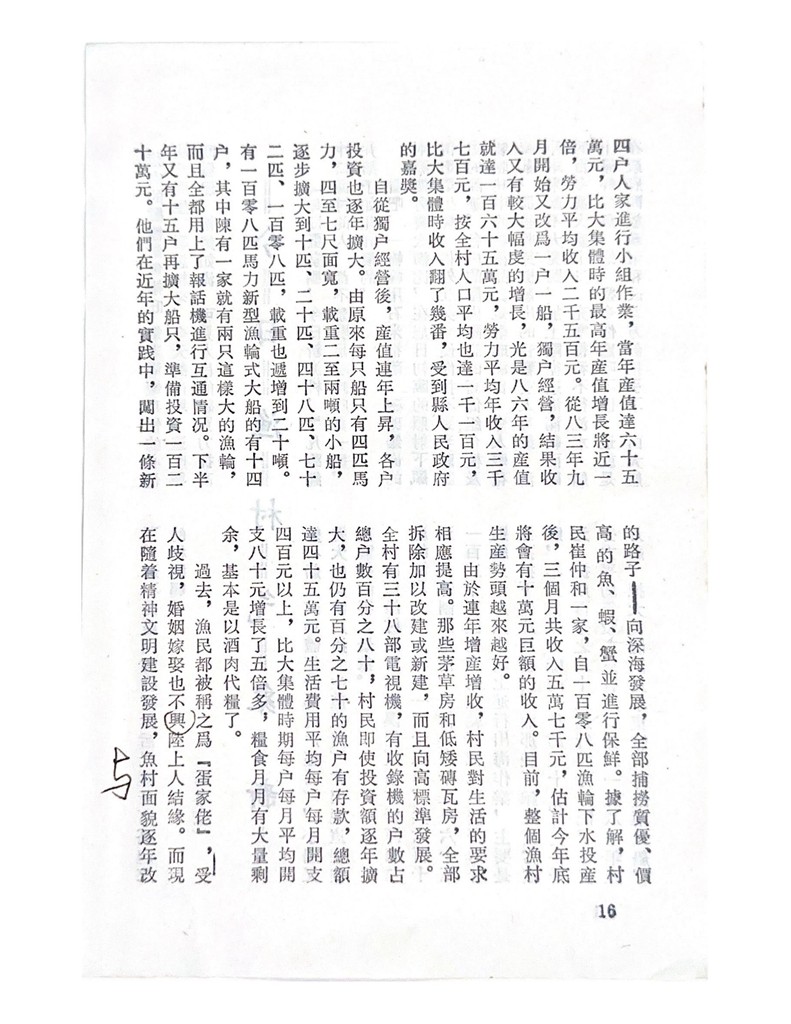 四户人家進行小組作業，當年産值達六十五
萬元，比大集體時的最高年産值增長將近一
倍，勞力平均收入二千五百元。從八三年九
月開始又改爲一户一船，獨户經營，結果收
人又有較大幅虔的增長，光是八六年的産值
就達一百六十五萬元，勞力平均年收入三千
七百元，按全村人口平均也達一千一百元，
比大集體時收入翻了幾番，受到縣人民政府
的嘉獎。
自從獨户經營後，産值連年上昇，各户
投資也逐年擴大。由原來每只船只有四匹馬
力，四至七尺面寬，載重二至兩噸的小船，
逐步擴大到十匹、二十匹、四十八匹、七十
二匹、一百零八匹，載重也遞增到二十噸。
有一百零八匹馬力新型漁輪式大船的有十四
户，其中陳有一家就有兩只這樣大的漁輪，
而且全都用上了報話機進行互通情况。下半
年又有十五户再擴大船只，準備投資一百二
十萬元。他們在近年的實踐中，闖出一條新
的路子——向深海發展，全部捕撈質優、價
高的魚、蝦、蟹並進行保鮮。據了解，村
民崔仲和一家，自一百零八匹漁輪下水投産
後，三個月共收入五萬七千元，估計今年底
將會有十萬元巨額的收入。目前，整個漁村
生産勢頭越來越好。
由於連年增産增收，村民對生活的要求
相應提高。那些茅草房和低矮磚瓦房，全部
拆除加以改建或新建，而且向高標準發展。
全村有三十八部電視機，有收錄機的户數占
總户數百分之八十，村民即使投資額逐年擴
大，也仍有百分之七十的漁户有存款，總額
達四十五萬元。生活費用平均每户每月開支
四百元以上，比大集體時期每户每月平均開
支八十元增長了五倍多，糧食月月有大量剩
余，基本是以酒肉代糧了。
過去，漁民都被稱之爲『蛋家佬』，受
人歧視，婚姻嫁娶也不興陸上人結緣。而現
在隨着精神文明建設發展，魚村面貌逐年改
与
16